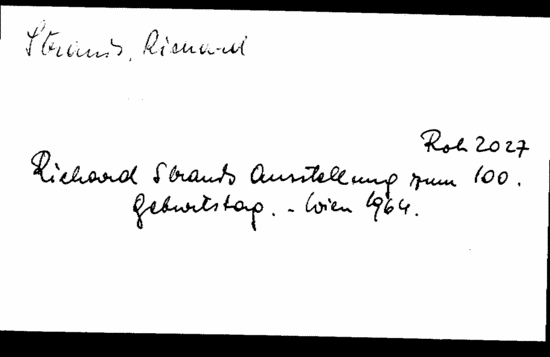 Strauß, Richard
Rok 2027
Richard Strauß Ausstellung zum 100.
Geburtstag. - Wien 1964.